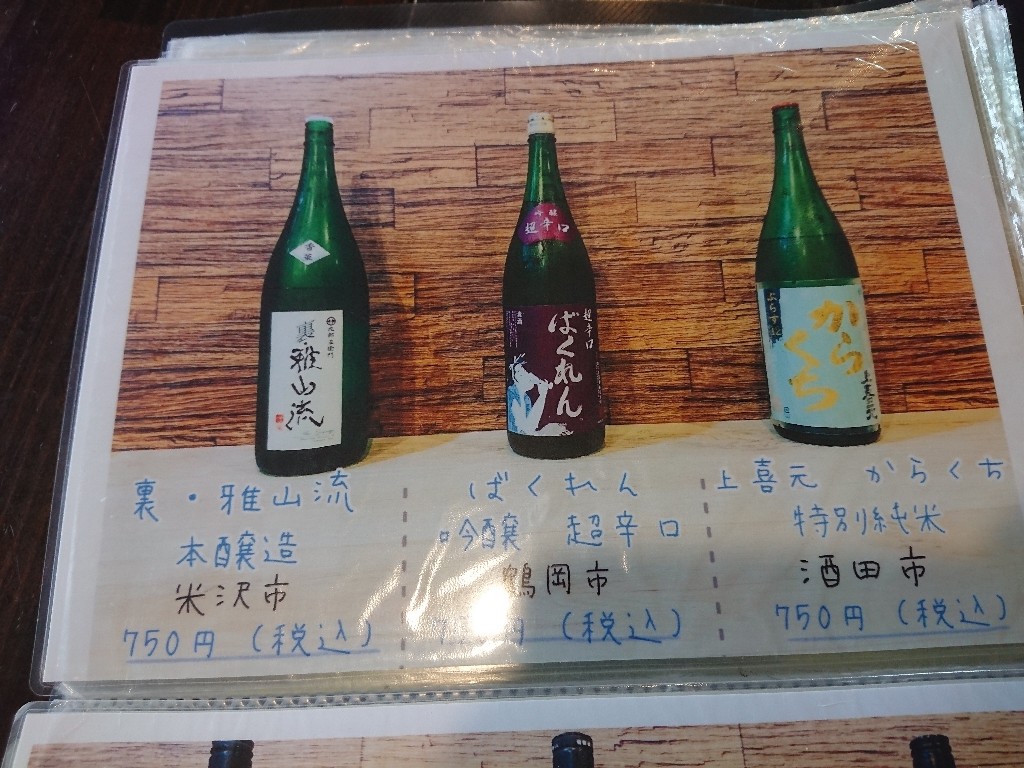 裏・雅山流
本醸造
米沢市
750円（税込）
ばくれん
吟醸 超辛口
鶴岡市
円（税込）
上喜元 からくち
特別純米
酒田市
750円（税込）
裏・雅山流
吟醸
超辛口
超辛口
ばくれん
からくち
上喜元